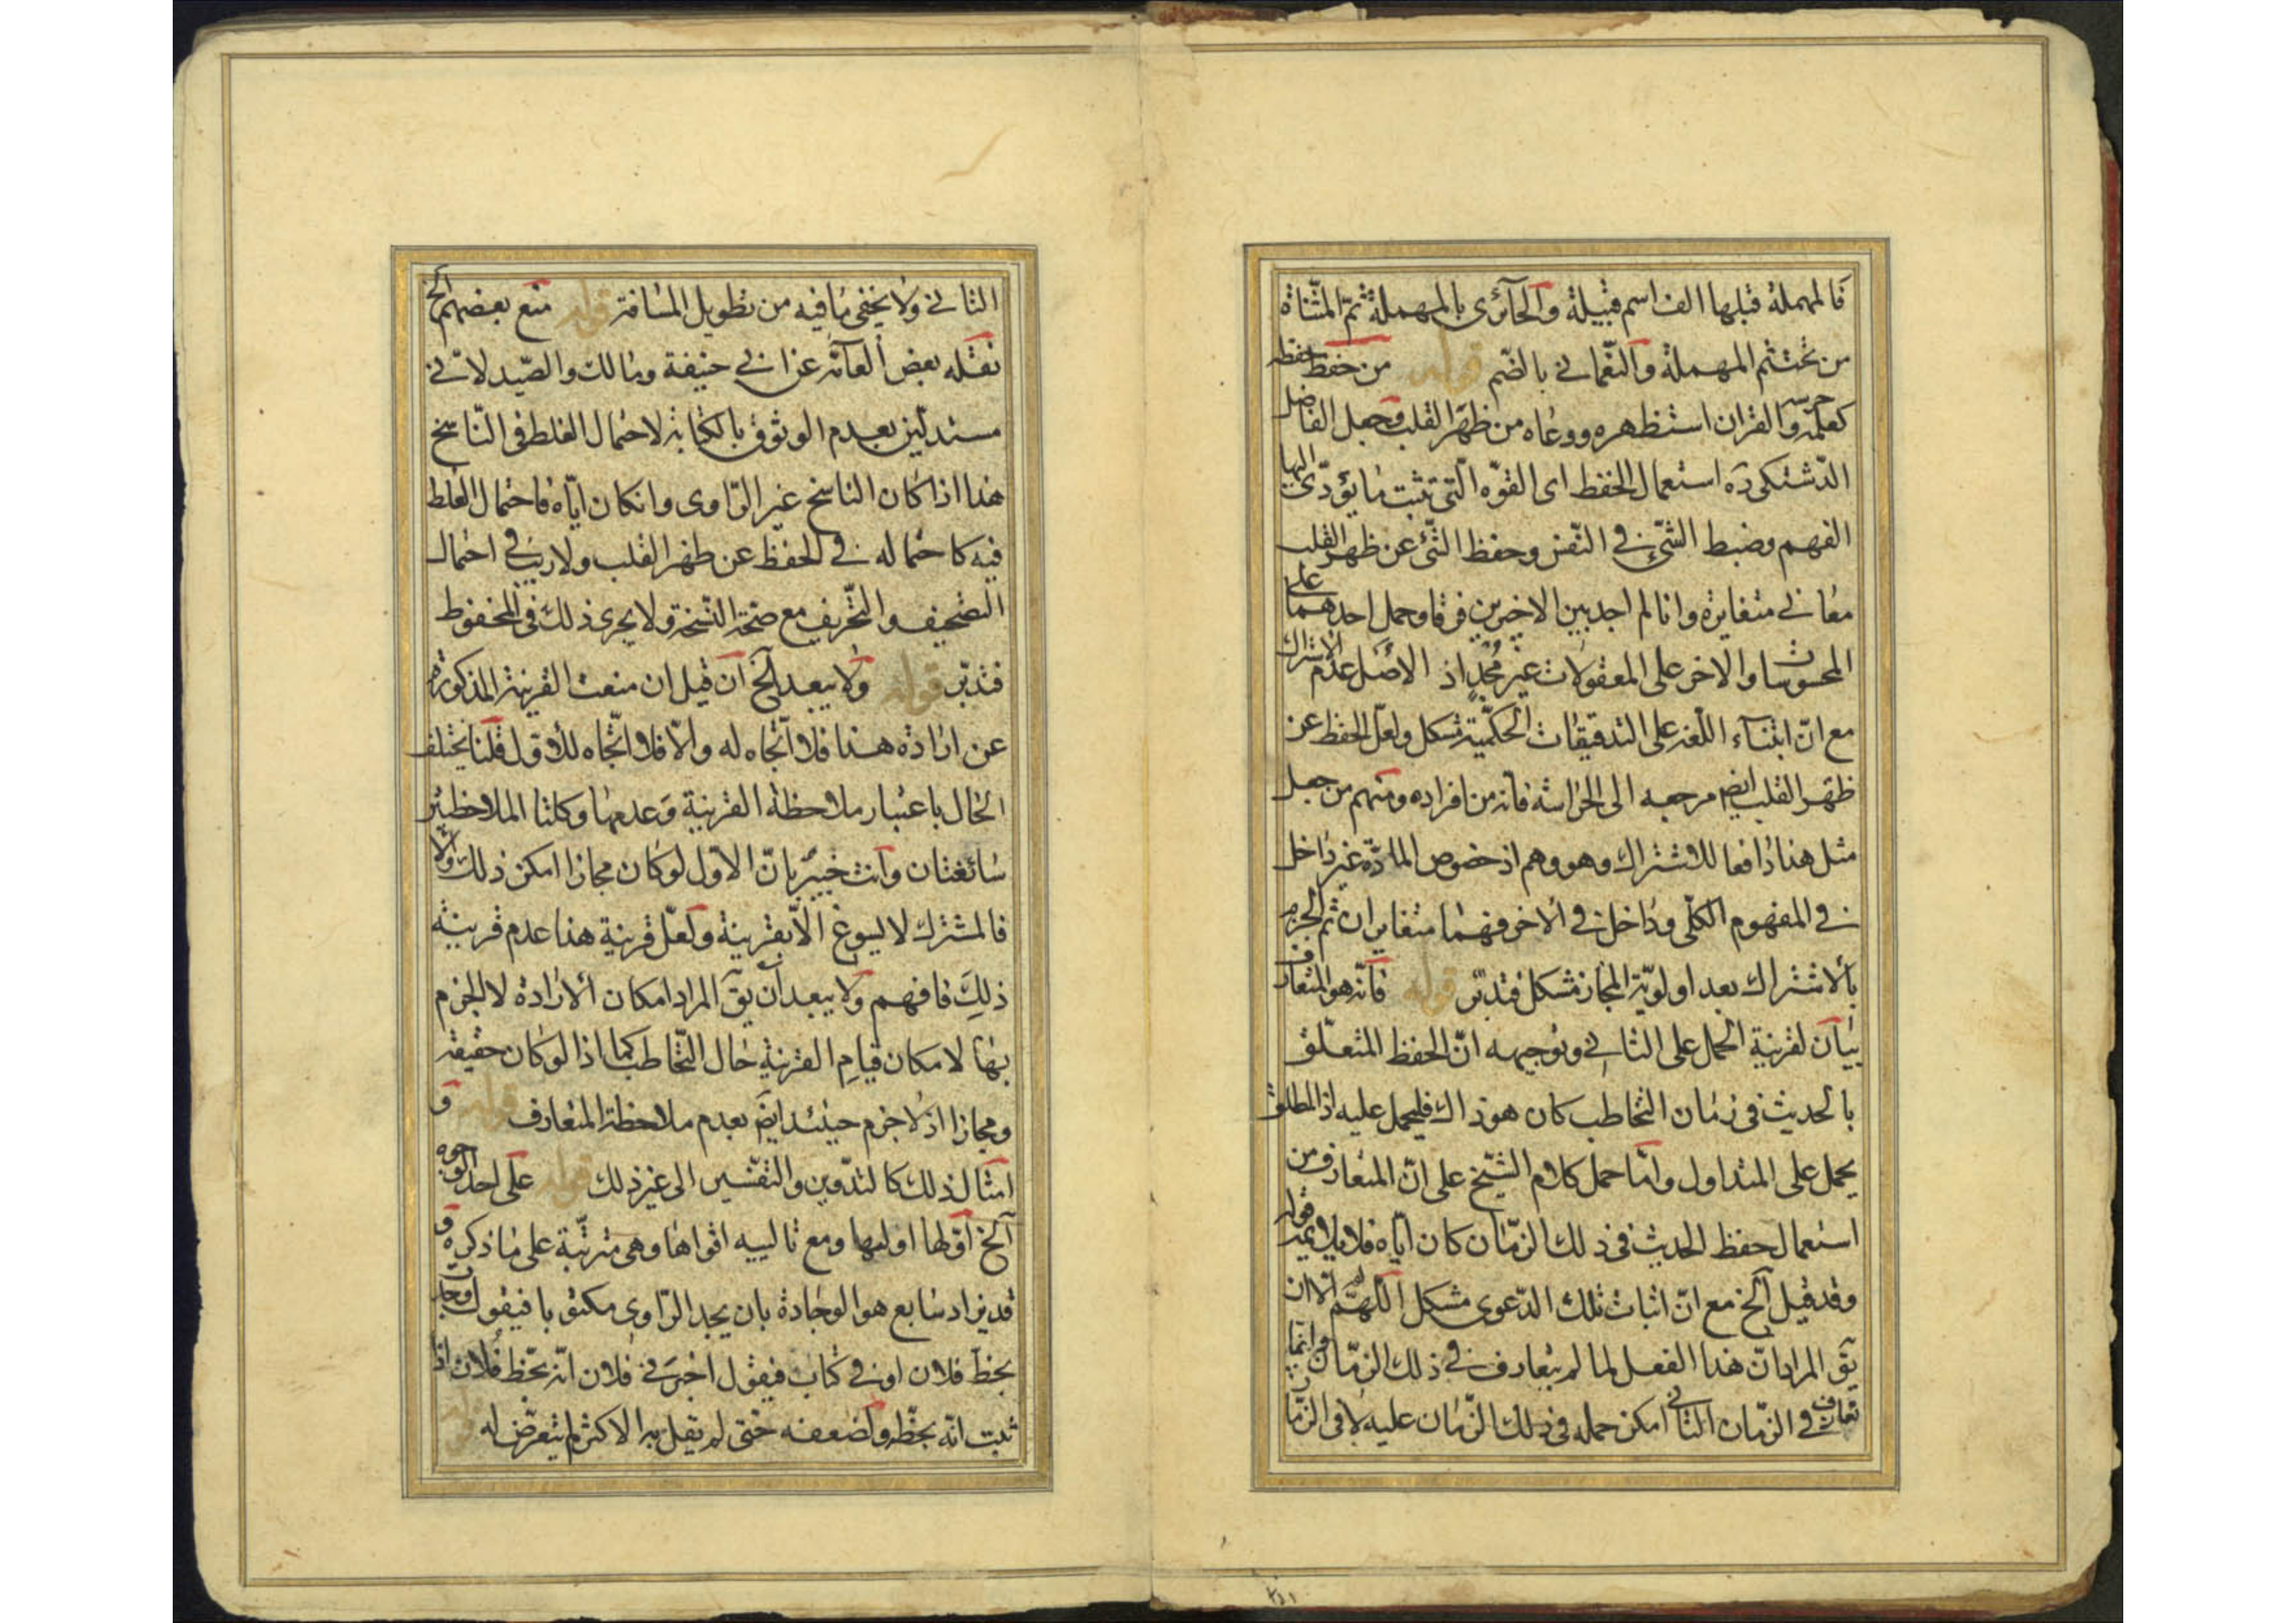 فالمهملة قبلها الف اسم قبيلة والحائری بالمهملة ثمّ المثنّاة
من تحت ثم المهملة والنعّمانی بالضّم قوله من حفظ حفظه
كعلمه حرسه والقران استظهره ووعاه من ظهر القلب وجعل الفاضل
الدّشتكی ره استعمال الحفظ ای القوّه الّتی تثبت ما يؤدّی اليها
الفهم وضبط الشّیء فی النّفس وحفظ الشّیء عن ظهر القلب
معانی متغايرة وانا لم اجد بين الاخيرين فرقا وحمل احدهما علی
المحسوسات والاخر علی المعقولات غير مُجدٍ اذ الاصل عدم الاشتراك
مع انّ ابتناء اللّغة علی التدقيقات الحكميّة مشكل ولعلّ الحفظ عن
ظهر القلب ايض مرجعه الی الحراسة فانه من افراده ومنهم من جعل
مثل هذا دافعا للاشتراك وهو وهم اذ خصوص المادّة غير داخل
فی المفهوم الكلّی وداخل فی الاخر فهما متغايران ثم الجزم
بالاشتراك بعد اولويّة المجاز مشكل فتدبّر قوله فانّه هو المتعارف
بيان لقرينة الحمل علی الثانی وتوجيهه انّ الحفظ المتعلّق
بالحديث فی زمان التخاطب كان هو ذاك فليحمل عليه اذ المطلق
يحمل علی المتداول وامّا حمل كلام الشّيخ علی انّ المتعارف من
استعمال حفظ الحديث فی ذلك الزّمان كان ايّاه فلا يلايمه قوله
وقد قيل الخ مع انّ اثبات تلك الدّعوی مشكل اللّهمّ الّا ان
يق المراد انّ هذا الفعل لما لم يتعارف فی ذلك الزّمان وانّما
تعارف فی الزّمان الثانی امكن حمله فی ذلك الزّمان عليه لا فی الزّمان
الثانی ولا يخفی ما فيه من تطويل المسافة قوله منع بعضهم الخ
نقله بعض العامّة عن ابی حنيفة ومالك والصّيدلانی
مستدلّين بعدم الوثوق بالكتابة لاحتمال الغلط فی النّاسخ
هذا اذا كان الناسخ غير الرّاوی وان كان ايّاه فاحتمال الغلط
فيه كاحتماله فی الحفظ عن ظهر القلب ولا ريب فی احتمال
التصحيف والتّحريف مع صحّة النّسخة ولا يجری ذلك فی المحفوظ
فتدبّر قوله ولا يبعد الخ ان قيل ان منعت القرينة المذكورة
عن ارادة هذا فلا اتّجاه له والّا فلا اتّجاه للاوّل قلنا يختلف
الحال باعتبار ملاحظة القرينة وعدمها وكلتا الملاحظتين
سائغتان وانت خبير بانّ الاوّل لو كان مجازا امكن ذلك والّا
فالمشترك لا يسوغ الّا بقرينة ولعلّ قرينة هذا عدم قرينة
ذلك فافهم ولا يبعد ان يق المراد امكان الارادة لا الجزم
بها لامكان قيام القرينة حال التّخاطب كما اذا لو كان حقيقة
ومجازا اذ لا جزم حينئذ ايض بعدم ملاحظة المتعارف قوله و
امثال ذلك كالتدّوين والتّفسير الی غير ذلك قوله علی احد الوجوه
الخ اوّلها اوليها ومع تالييه اقواها وهی مترتّبة علی ما ذكره و
قد يزاد سابع هو الوجادة بان يجد الرّاوی مكتوبا فيقول وجدت
بخطّ فلان او فی كتاب فيقول اخبرنی فلان انّه بخّط فلان اذا
ثبت انّه بخطّه ولضعفه حتی لم يقل به الاكثر لم يتعرّض له قوله